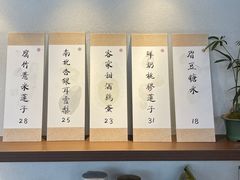 腐竹薏米蓮子
28
南北杏銀耳雪梨
25
客家甜酒鷄蛋
23
鮮奶桃膠蓮子
31
眉豆糖水
18